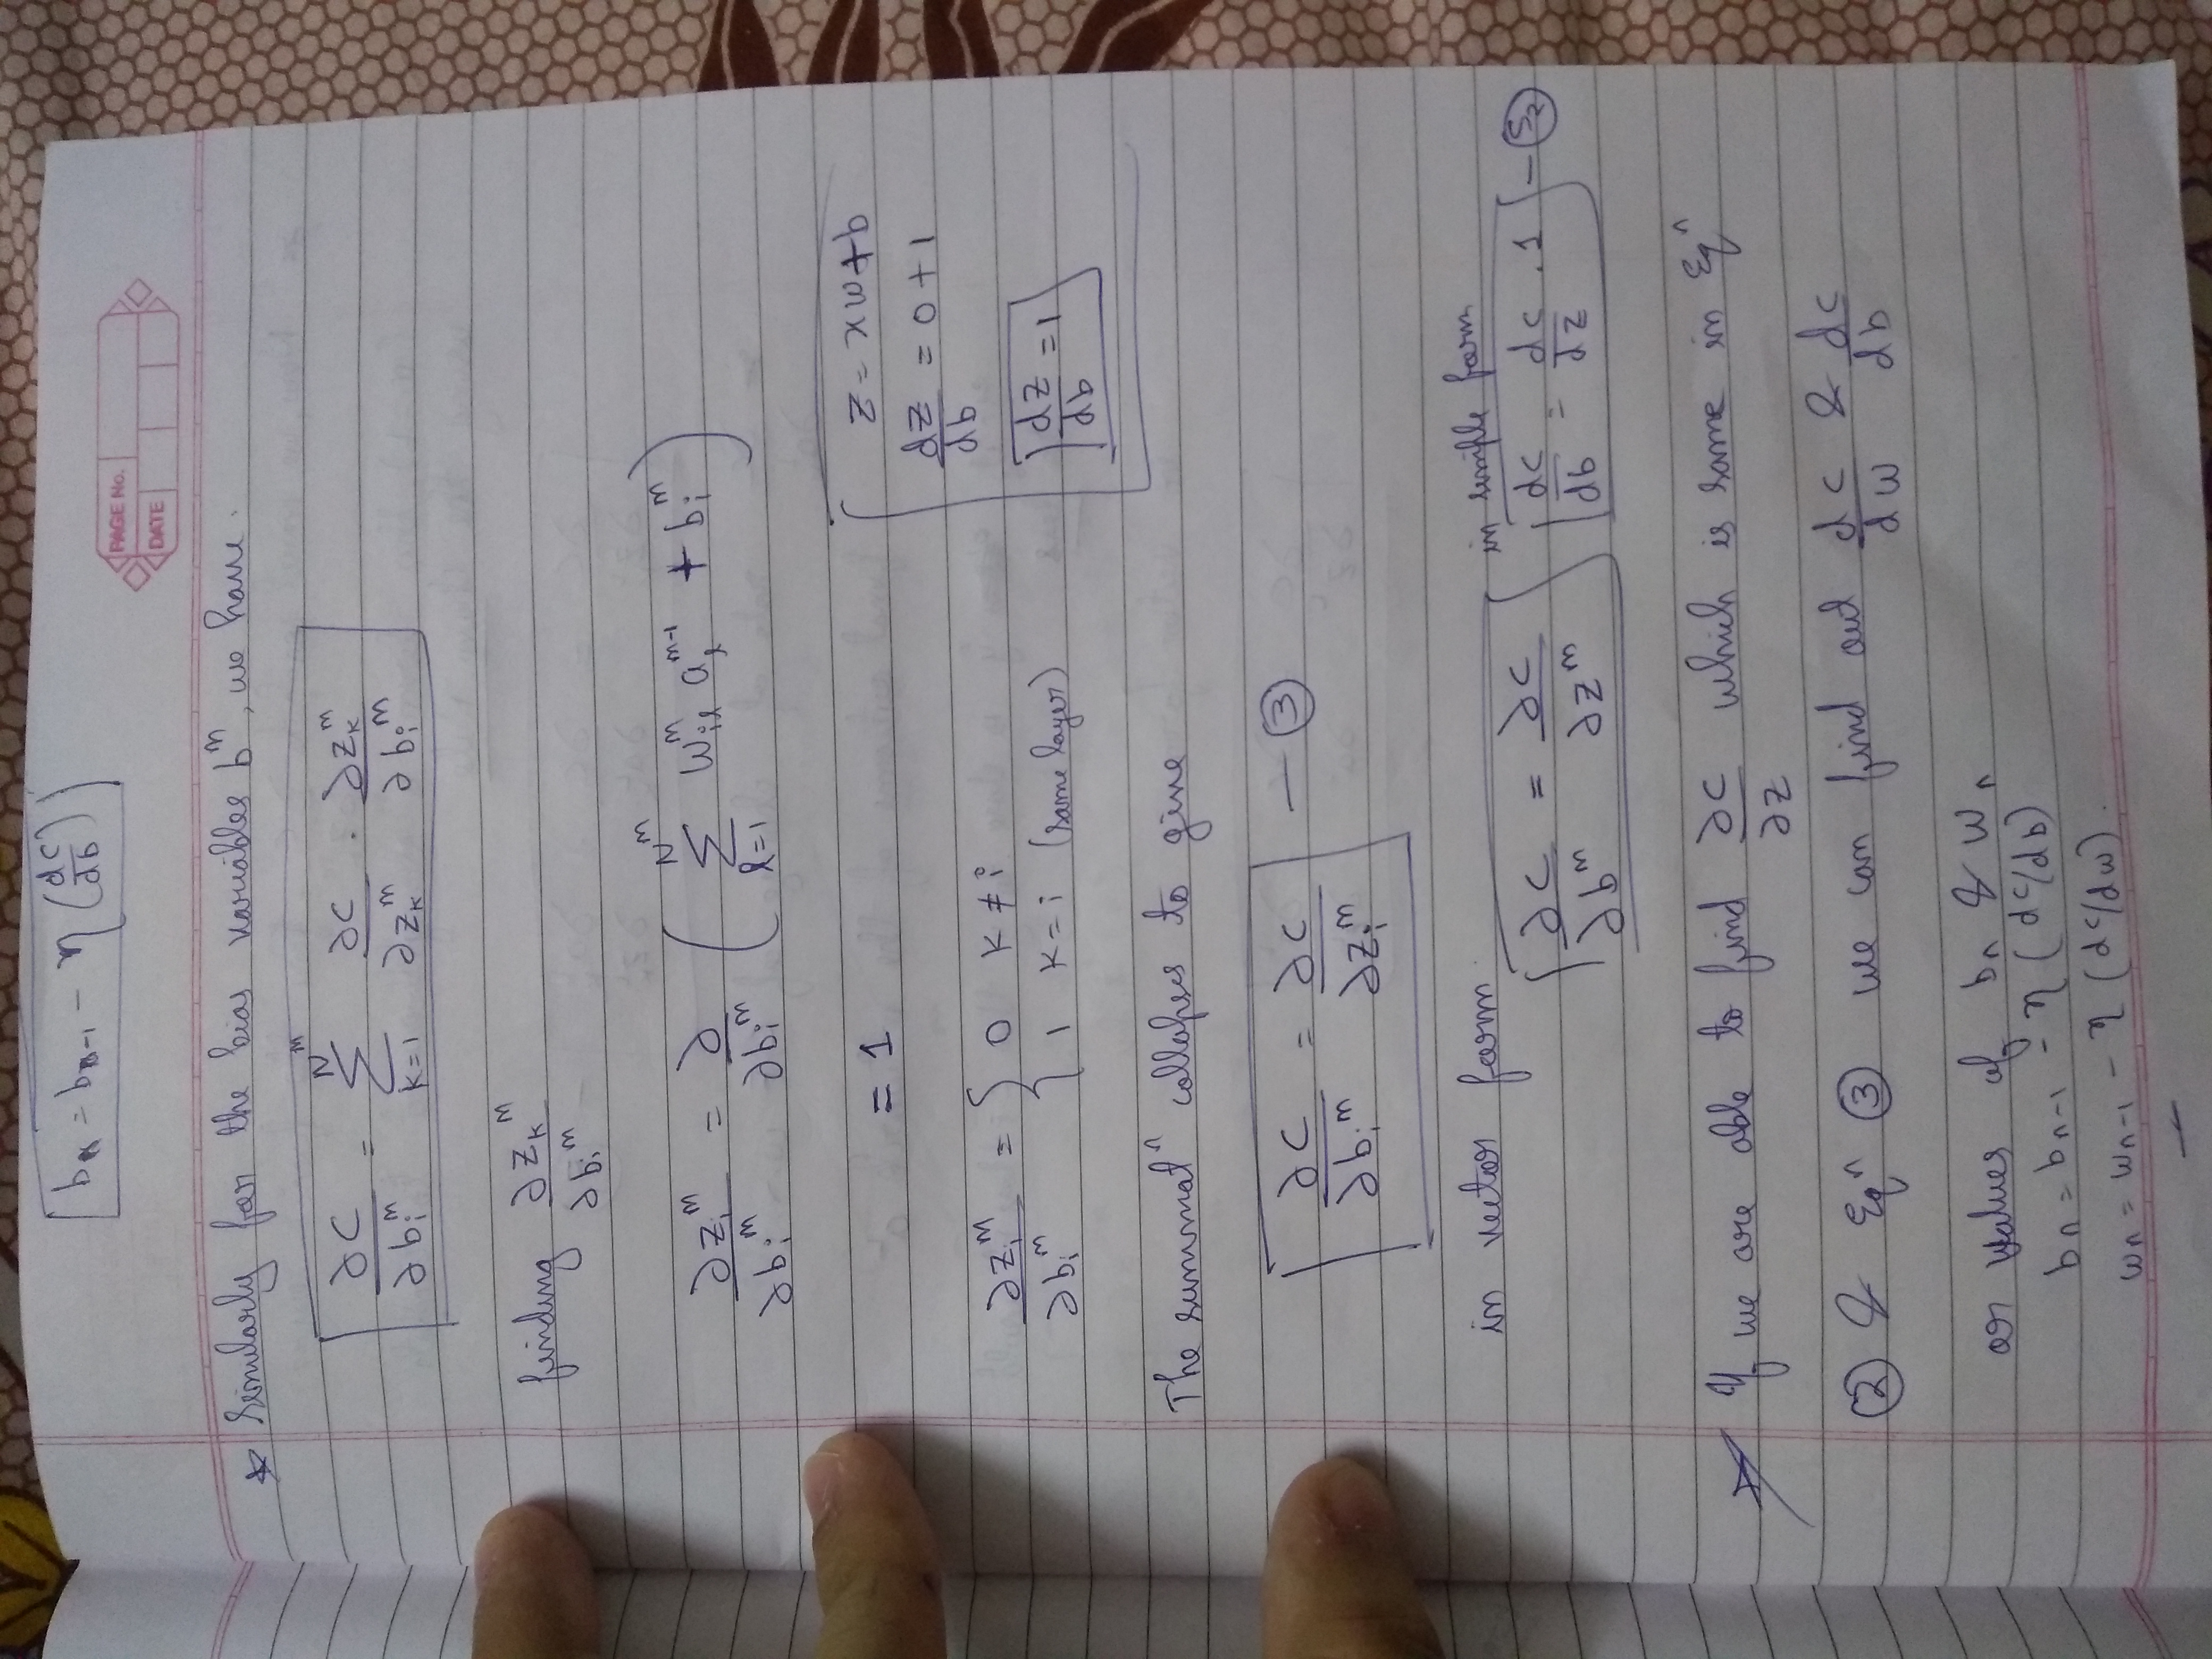 bₙ = bₙ₋₁ - η (dC/db)
PAGE No.
DATE
☆ Similarly for the bias variables bᵐ, we have.
∂C/∂bᵢᵐ = Σ_{k=1}^{Nᵐ} ∂C/∂z_kᵐ . ∂z_kᵐ/∂bᵢᵐ
finding ∂z_kᵐ/∂bᵢᵐ
∂zᵢᵐ/∂bᵢᵐ = ∂/∂bᵢᵐ ( Σ_{l=1}^{Nᵐ} Wᵢₗᵐ aₗᵐ⁻¹ + bᵢᵐ )
= 1
z = xw+b
dz/db = 0 + 1
dz/db = 1
∂zᵢᵐ/∂bᵢᵐ = { 0 k ≠ i
1 k = i (same layer)
The summatⁿ collapses to give
∂C/∂bᵢᵐ = ∂C/∂zᵢᵐ — ③
in vector form
∂C/∂bᵐ = ∂C/∂zᵐ
in simple form
dc/db = dc/dz . 1 — S₂
If we are able to find ∂C/∂z which is same in Eqⁿ
② & Eqⁿ ③ we can find out dc/dw & dc/db
or values of bₙ & wₙ
bₙ = bₙ₋₁ - η (dc/db)
wₙ = wₙ₋₁ - η (dc/dw).